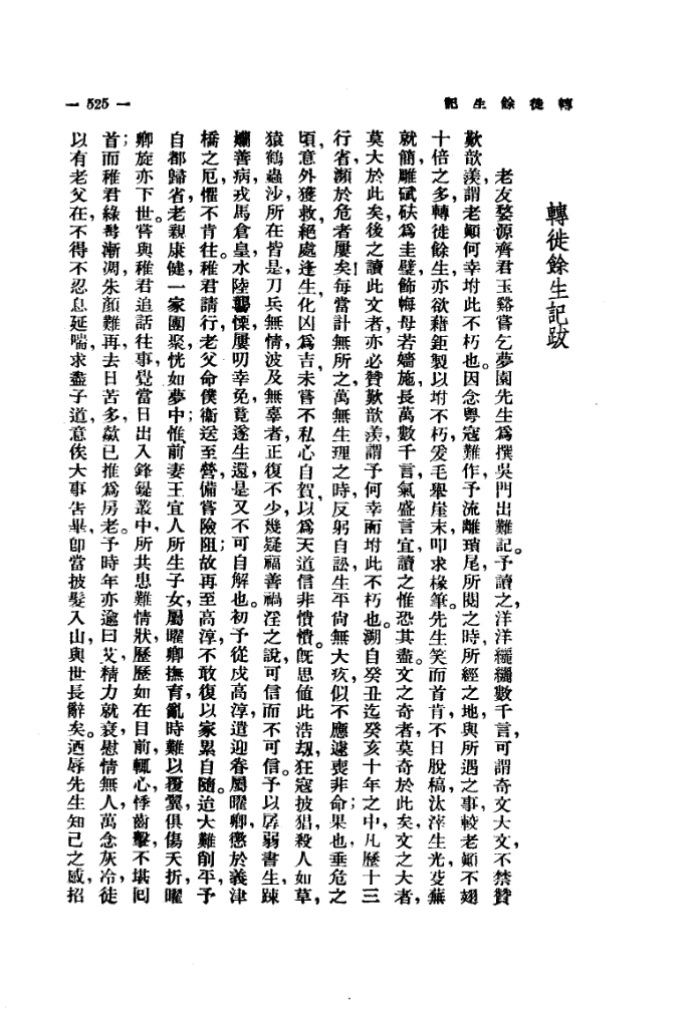 轉徙餘生記
— 525 —
轉徙餘生記跋
老友婺源齊君玉谿嘗乞夢園先生爲撰吳門出難記。予讀之，洋洋纚纚數千言，可謂奇文大文，不禁贊
歎歆羨，謂老顛何幸坿此不朽也。因念粵寇難作，予流離瑣尾，所閱之時，所經之地，與所遇之事，較老顛不翅
十倍之多，轉徙餘生，亦欲藉鉅製以坿不朽，爰毛舉崖末，叩求椽筆。先生笑而首肯，不日脫稿，汰滓生光，芟蕪
就簡，雕碔砆爲圭璧，飾悔母若嬙施，長萬數千言，氣盛言宜，讀之惟恐其盡。文之奇者，莫奇於此矣，文之大者，
莫大於此矣，後之讀此文者，亦必贊歎歆羨，謂予何幸而坿此不朽也。溯自癸丑迄癸亥十年之中，凡歷十三
行省，瀕於危者屢矣！每當計無所之，萬無生理之時，反躬自訟，生平尙無大疚，似不應遽喪非命；果也垂危之
頃，意外獲救，絕處逢生，化凶爲吉，未嘗不私心自賀，以爲天道信非憒憒。旣思値此浩刼，狂寇披猖，殺人如草，
猿鶴蟲沙，所在皆是，刀兵無情，波及無辜者，正復不少，幾疑福善禍淫之說，可信而不可信。予以孱弱書生，踈
嬾善病，戎馬倉皇，水陸驚慄，屢叨幸免，竟遂生還，是又不可自解也。初予從戎高淳，遣迎眷屬，曜卿懲於義津
橋之厄，懼不肯往。稚君請行，老父命僕衞送至營，備嘗險阻；故再至高淳，不敢復以家累自隨。迨大難削平，予
自都歸省，老親康健，一家團聚，恍如夢中；惟前妻王宜人所生子女，屬曜卿撫育，亂時難以覆翼，俱傷夭折，曜
卿旋亦下世。嘗與稚君追話往事，覺當日出入鋒鍉叢中，所共患難情狀，歷歷如在目前，輒心悸齒擊，不堪囘
首；而稚君綠鬢漸凋，朱顏難再，去日苦多，歘已推爲房老。予時年亦逾曰艾，精力就衰，慰情無人，萬念灰冷，徒
以有老父在，不得不忍息延喘，求盡子道，意俟大事吿畢，卽當披髮入山，與世長辭矣。迺辱先生知己之感，招